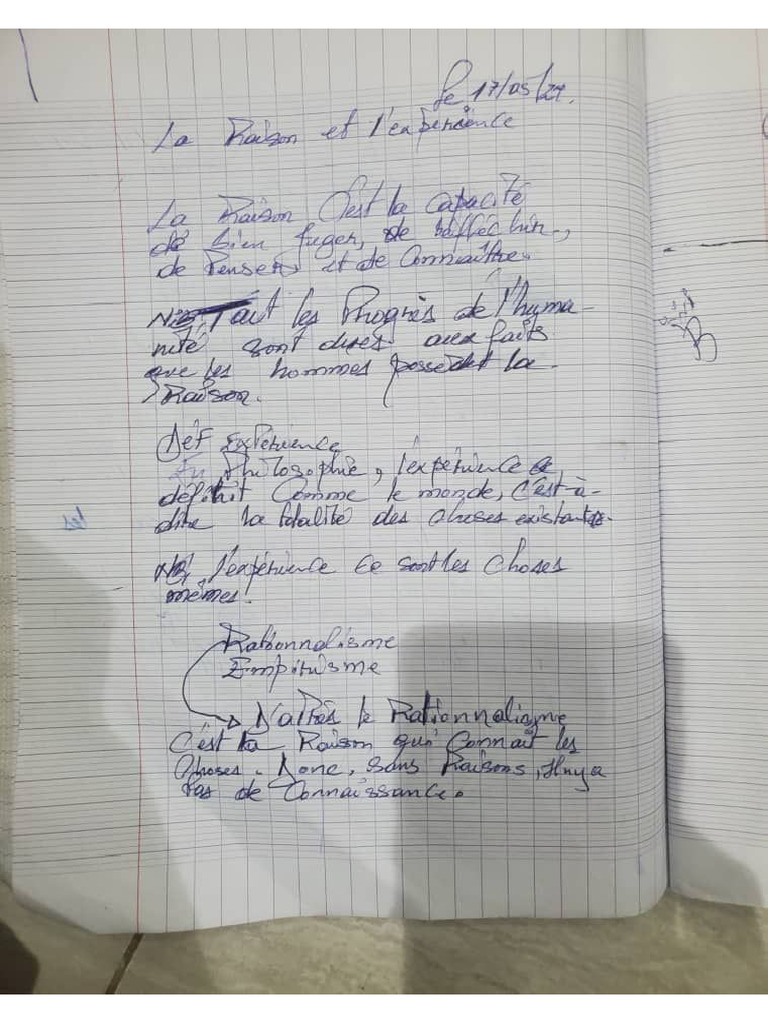 le 17/05/24.
La Raison et l'expérience
La Raison C'est la capacité
de bien juger, de réfléchir,
de Penser et de Connaître.
NB Tout les Progrès de l'huma-
nité sont dues aux faits
que les hommes possèdent la
Raison.
Def Expérience
En Philosophie, l'expérience se
définit Comme le monde, C'est-à-
dire la totalité des choses existantes.
NB l'expérience ce sont les choses
mêmes.
Rationnalisme
Empirisme
D'après le Rationnalisme
C'est la Raison qui Connait les
choses. Donc, sans Raisons, il ny a
Pas de Connaissance.